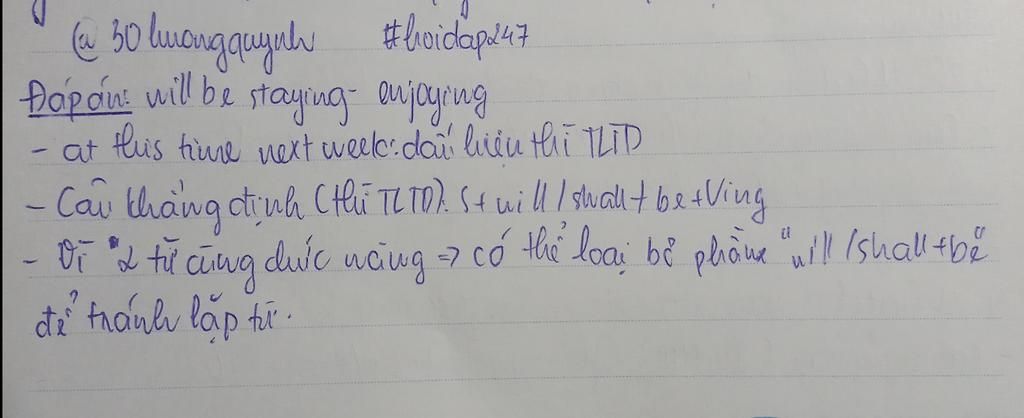 @ 30huongquynh #hoidap247
Đáp án: will be staying - enjoying
- at this time next week: dấu hiệu thì TLTD
- Câu khẳng định (thì TLTD): S + will / shall + be + Ving
- Vì 2 từ cùng chức năng => có thể loại bỏ phần "will / shall + be"
để tránh lặp từ.